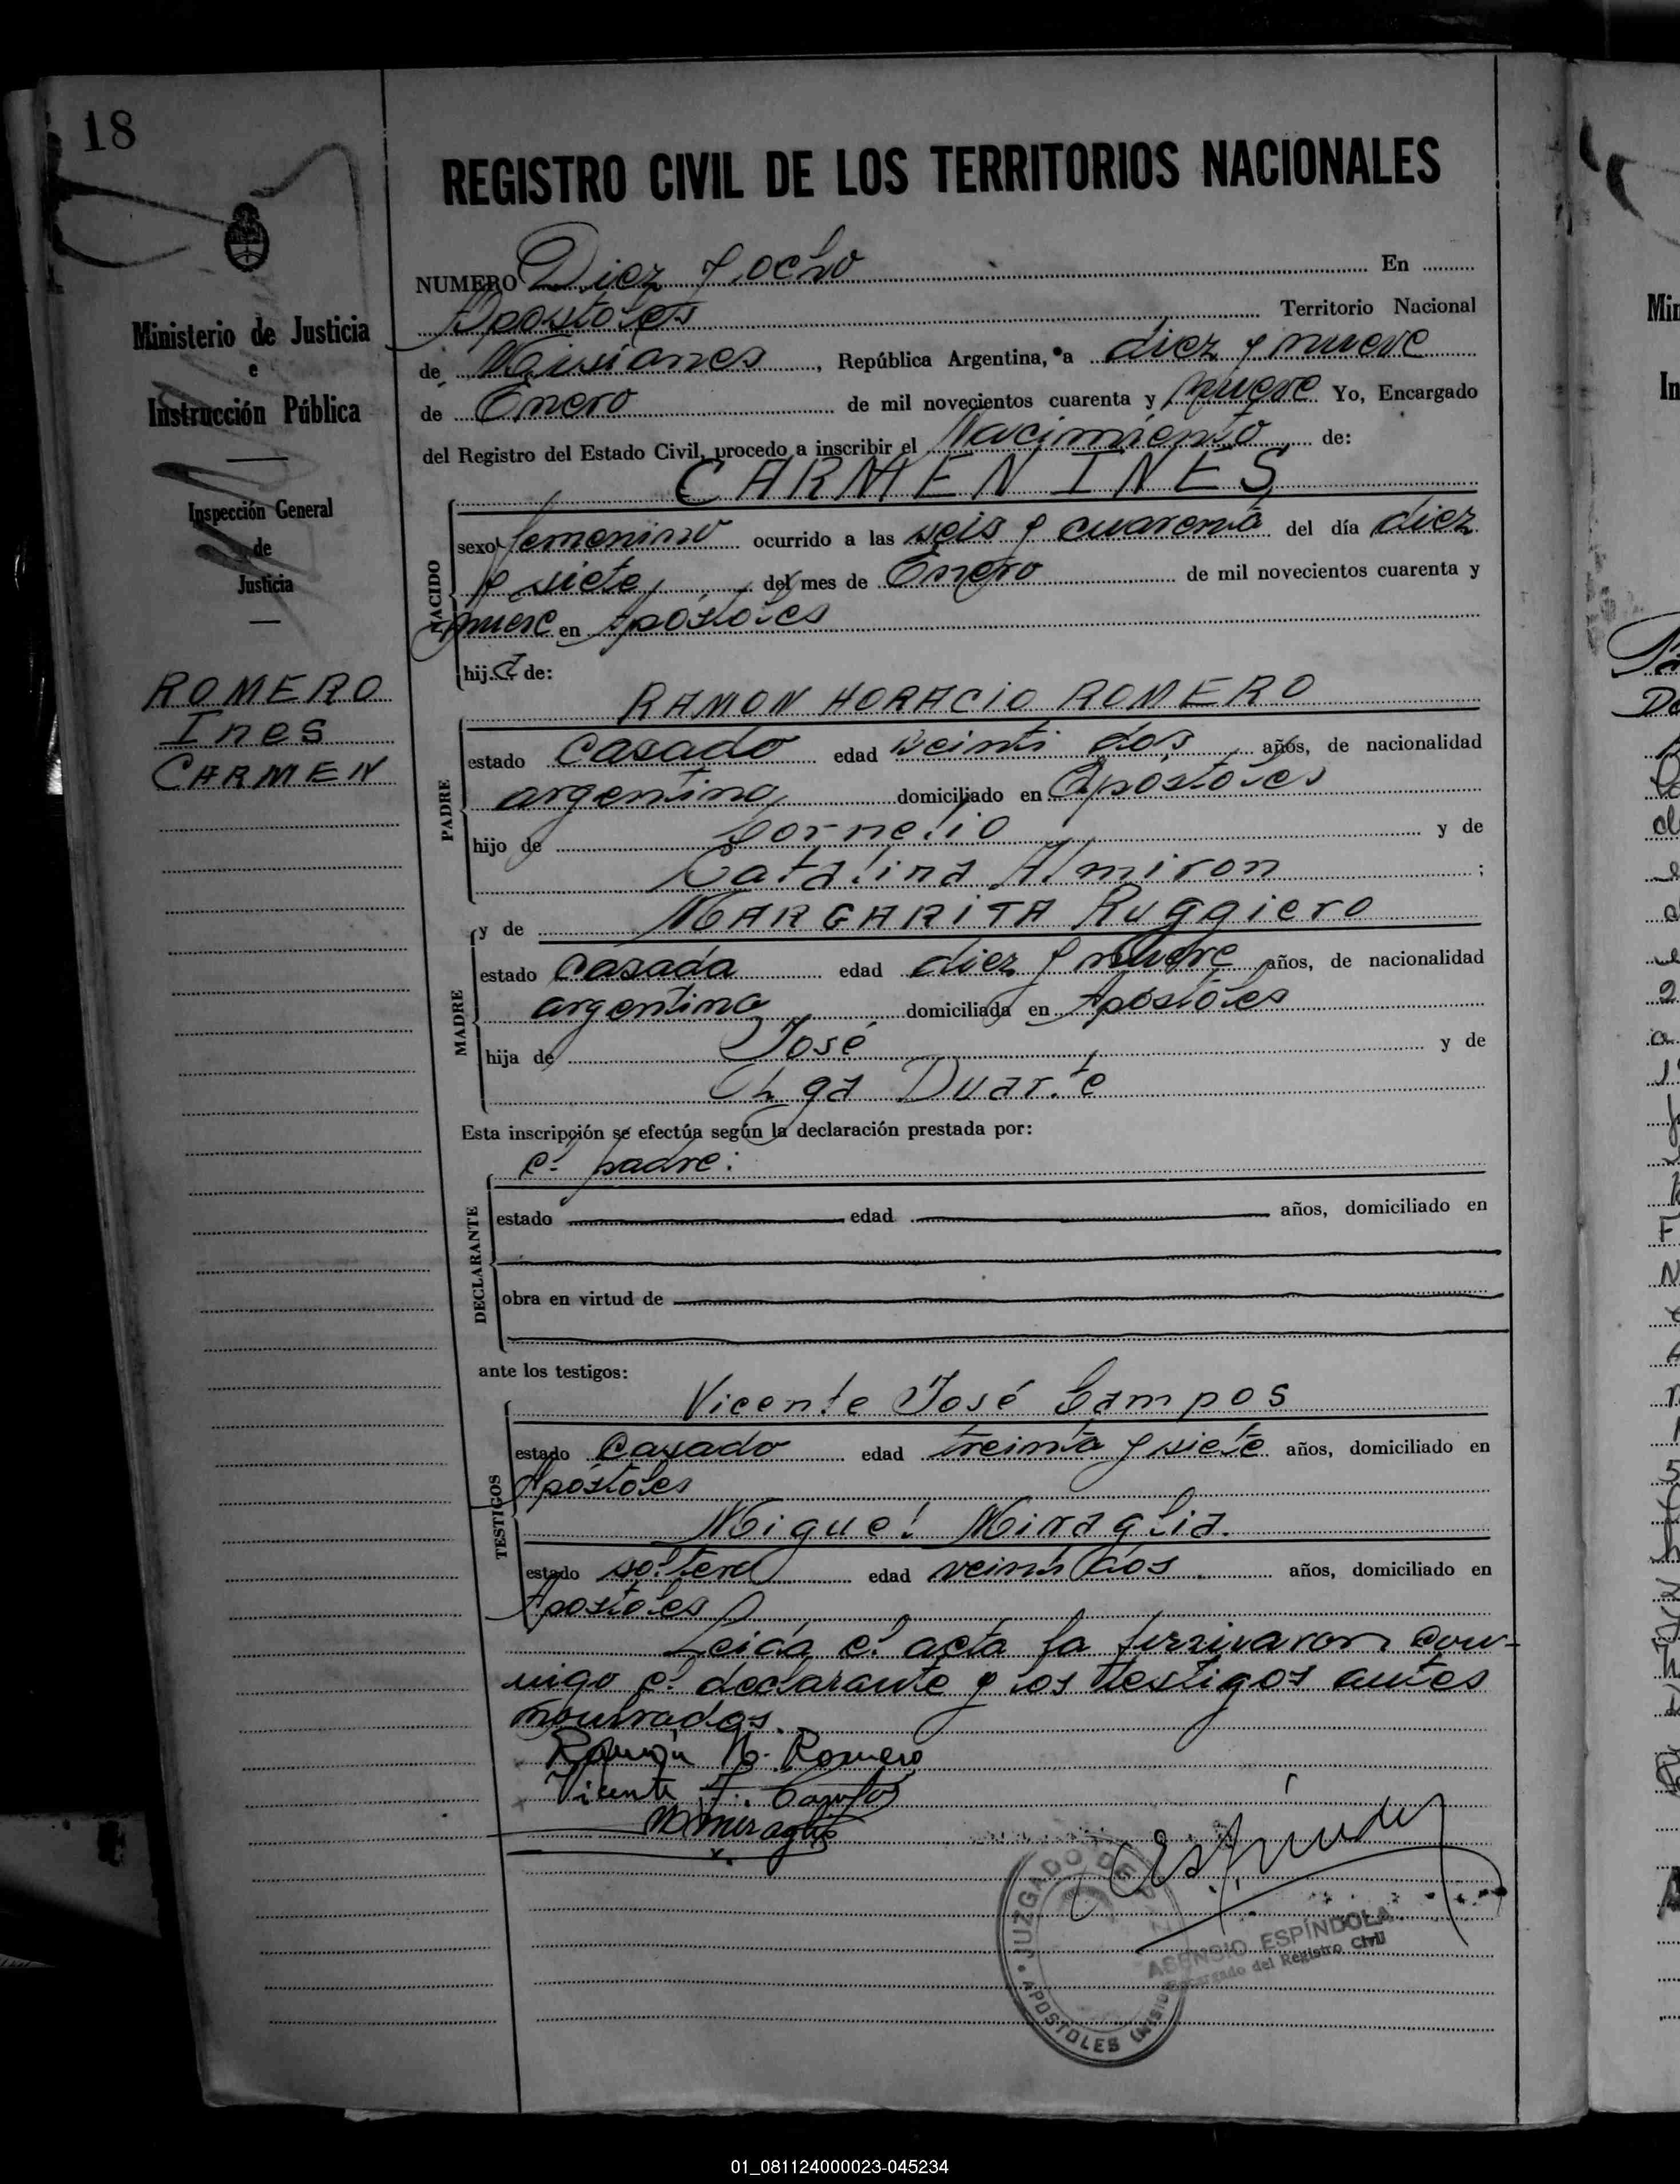 18
REGISTRO CIVIL DE LOS TERRITORIOS NACIONALES
Ministerio de Justicia
e
Instrucción Pública
Inspección General
de
Justicia
ROMERO
Ines
CARMEN
NUMERO Diez y ocho En
Apostoles Territorio Nacional
de Misiones, República Argentina, a diez y nueve
de Enero de mil novecientos cuarenta y nueve Yo, Encargado
del Registro del Estado Civil, procedo a inscribir el Nacimiento de:
CARMEN INES
NACIDO
sexo femenino ocurrido a las seis y cuarenta del día diez
y siete del mes de Enero de mil novecientos cuarenta y
nueve en Apóstoles
hija de:
RAMON HORACIO ROMERO
PADRE
estado Casado edad veinti dos años, de nacionalidad
argentina domiciliado en Apóstoles
hijo de Cornelio y de
Catalina Almiron;
y de MARGARITA Ruggiero
MADRE
estado Casada edad diez y nueve años, de nacionalidad
argentina domiciliada en Apóstoles
hija de José y de
Olga Duarte
Esta inscripción se efectúa según la declaración prestada por:
el padre:
DECLARANTE
estado edad años, domiciliado en
obra en virtud de
ante los testigos:
Vicente José Campos
TESTIGOS
estado Casado edad treinta y siete años, domiciliado en
Apóstoles
Miguel Miraglia.
estado soltero edad veinti dos años, domiciliado en
Apostoles
Leida el acta la firmaron con-
migo el declarante y los testigos antes
nombrados.
Ramón H. Romero
Vicente J. Campos
M Miraglia
JUZGADO DE PAZ
APOSTOLES
ASENSIO ESPÍNDOLA
Encargado del Registro Civil
01_081124000023-045234